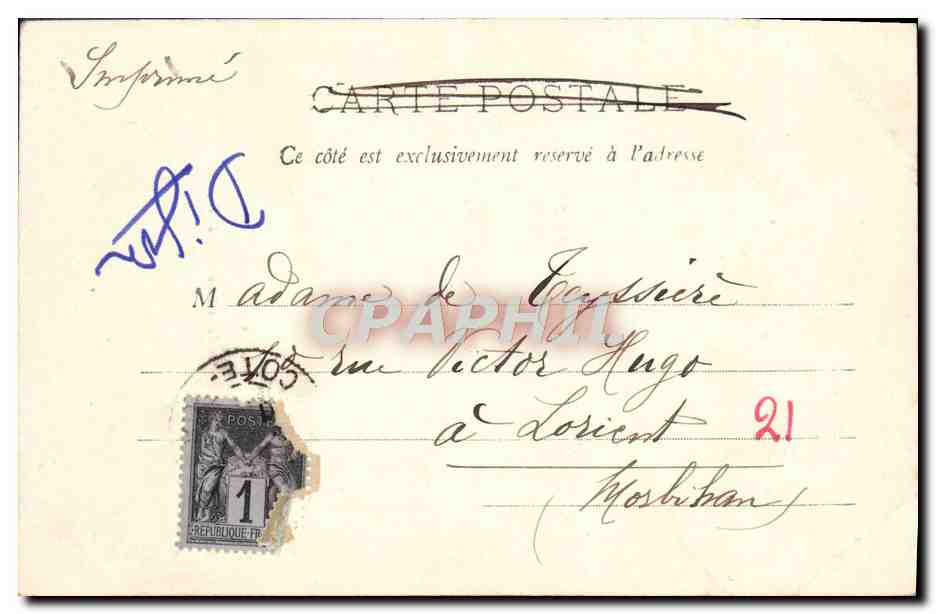 Imprimé
CARTE POSTALE
Ce côté est exclusivement reservé à l'adresse
Dijon
Madame de Teyssière
rue Victor Hugo
à Lorient
21
(Morbihan)
CPAPHIL
COTE-
POST
1
REPUBLIQUE FR